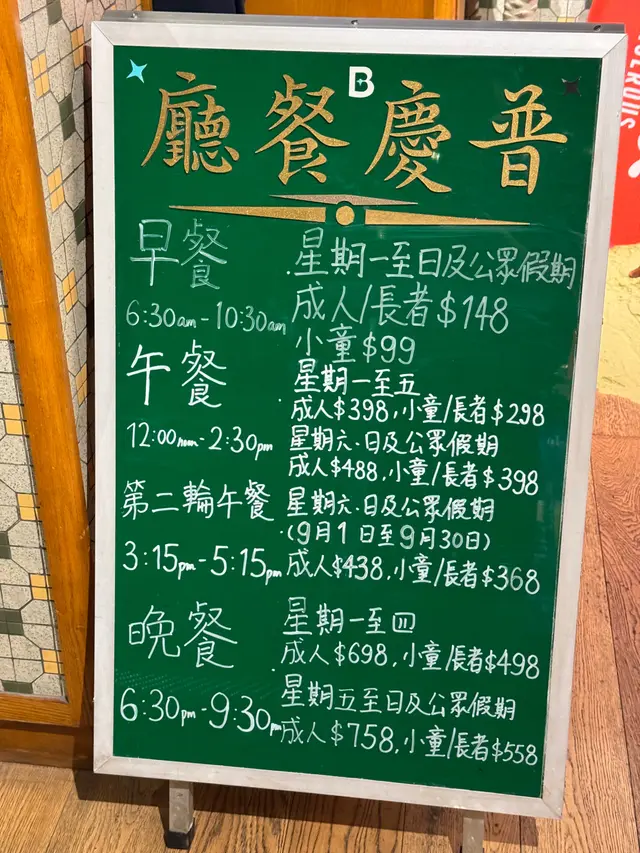 B
廳餐慶普
早餐
6:30am-10:30am
星期一至日及公眾假期
成人/長者$148
小童$99
午餐
12:00noon-2:30pm
星期一至五
成人$398,小童/長者$298
星期六.日及公眾假期
成人$488,小童/長者$398
第二輪午餐
3:15pm-5:15pm
星期六.日及公眾假期
(9月1日至9月30日)
成人$438,小童/長者$368
晚餐
6:30pm-9:30pm
星期一至四
成人$698,小童/長者$498
星期五至日及公眾假期
成人$758,小童/長者$558